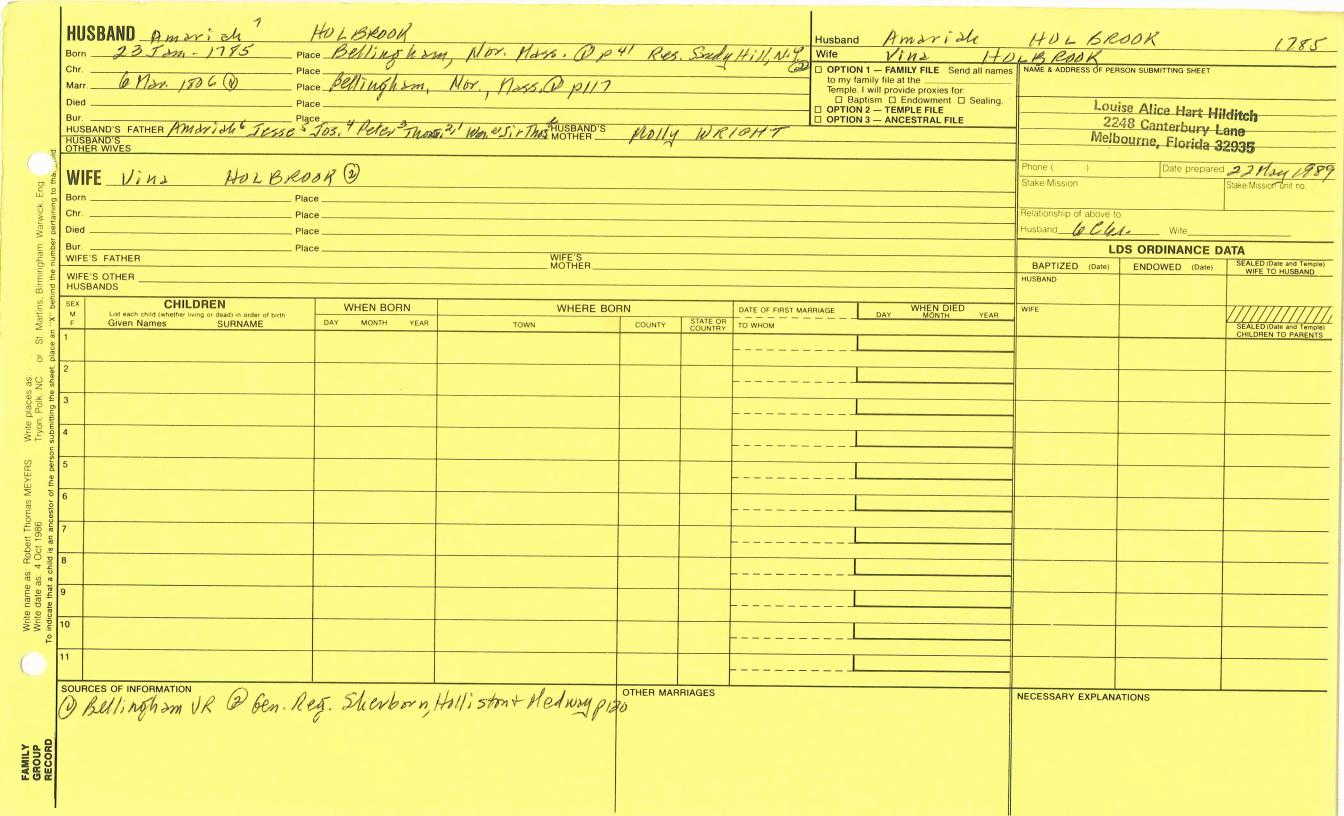 HUSBAND Amariah 7 HOLBROOK
Born 23 Jan - 1785 Place Bellingham, Nor. Mass. ① p 41 Res. Sandy Hill, N.Y. ②
Chr. Place
Marr. 6 Mar. 1806 ① Place Bellingham, Nor., Mass. ① p117
Died Place
Bur. Place
HUSBAND'S FATHER Amariah 6 Jesse 5 Jos. 4 Peter 3 Thos. 2, 1 HUSBAND'S MOTHER Molly WRIGHT
HUSBAND'S OTHER WIVES
Husband Amariah HOLBROOK 1785
Wife Vina HOLBROOK
☐ OPTION 1 — FAMILY FILE Send all names
to my family file at the
Temple. I will provide proxies for:
☐ Baptism ☐ Endowment ☐ Sealing.
☐ OPTION 2 — TEMPLE FILE
☐ OPTION 3 — ANCESTRAL FILE
NAME & ADDRESS OF PERSON SUBMITTING SHEET
Louise Alice Hart Hilditch
2248 Canterbury Lane
Melbourne, Florida 32935
Phone ( ) Date prepared 22 May 1989
Stake-Mission Stake-Mission unit no.
Relationship of above to
Husband 6 C Wife
WIFE Vina HOLBROOK ②
Born Place
Chr. Place
Died Place
Bur. Place
WIFE'S FATHER WIFE'S MOTHER
WIFE'S OTHER HUSBANDS
LDS ORDINANCE DATA
BAPTIZED (Date) ENDOWED (Date) SEALED (Date and Temple) WIFE TO HUSBAND
HUSBAND
WIFE
SEALED (Date and Temple) CHILDREN TO PARENTS
SEX M F CHILDREN WHEN BORN WHERE BORN DATE OF FIRST MARRIAGE WHEN DIED
List each child (whether living or dead) in order of birth
Given Names SURNAME DAY MONTH YEAR TOWN COUNTY STATE OR COUNTRY TO WHOM DAY MONTH YEAR
1
2
3
4
5
6
7
8
9
10
11
SOURCES OF INFORMATION
① Bellingham VR ② Gen. Reg. Sherborn, Holliston + Medway p 120
OTHER MARRIAGES
NECESSARY EXPLANATIONS
Write name as: Robert Thomas MEYERS Write places as: Tryon, Polk, NC or St. Martins, Birmingham, Warwick, Eng
Write date as: 4 Oct 1986
To indicate that a child is an ancestor of the person submitting the sheet, place an "X" behind the number pertaining to that
FAMILY
GROUP
RECORD